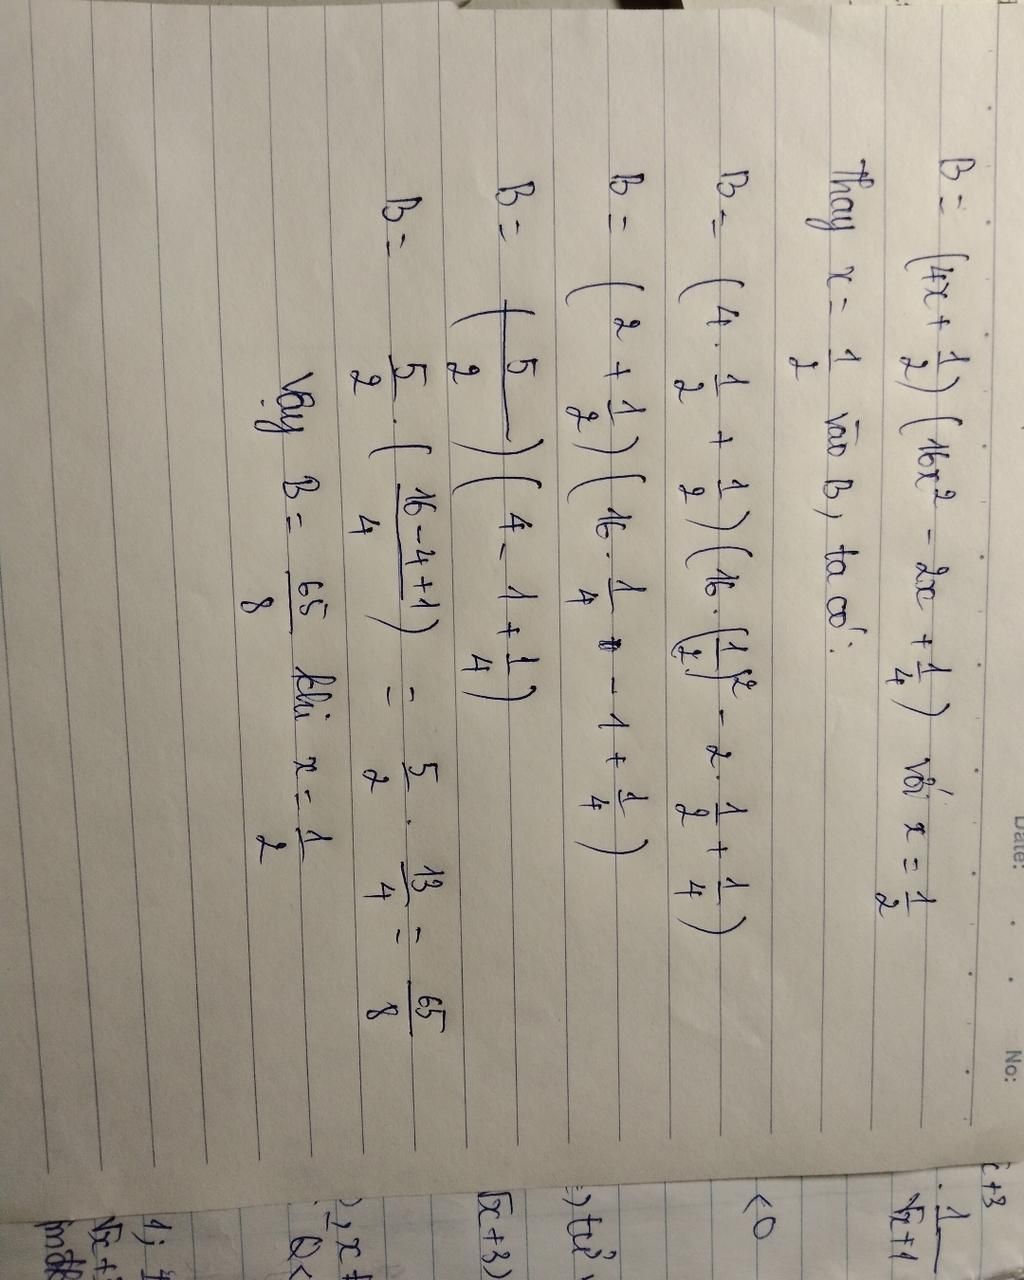 Date:
No:
B = (4x + 1/2)(16x² - 2x + 1/4) với x = 1/2
Thay x = 1/2 vào B, ta có:
B = (4 . 1/2 + 1/2)(16 . (1/2)² - 2 . 1/2 + 1/4)
B = (2 + 1/2)(16 . 1/4 - 1 + 1/4)
B = (5/2)(4 - 1 + 1/4)
B = 5/2 . (16 - 4 + 1)/4 = 5/2 . 13/4 = 65/8
Vậy B = 65/8 khi x = 1/2
+3
. 1/(√x+1)
<0
√x+3)